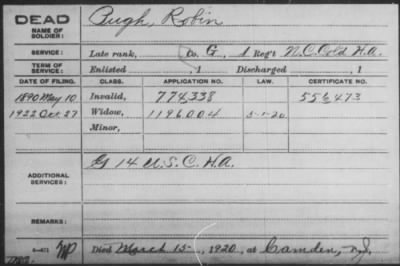 DEAD
NAME OF SOLDIER: Pugh, Robin
SERVICE: Late rank, Co. G, 1 Reg't N.C. Cold H.A.
TERM OF SERVICE: Enlisted , 1 Discharged , 1
DATE OF FILING. CLASS. APPLICATION NO. LAW. CERTIFICATE NO.
1890 May 10 Invalid, 774,338 556,473
1922 Oct. 27 Widow, 1196004 5-1-20
Minor,
ADDITIONAL SERVICES: G 14 U.S.C.H.A.
REMARKS:
Died March 15-, 1920, at Camden, N.J.